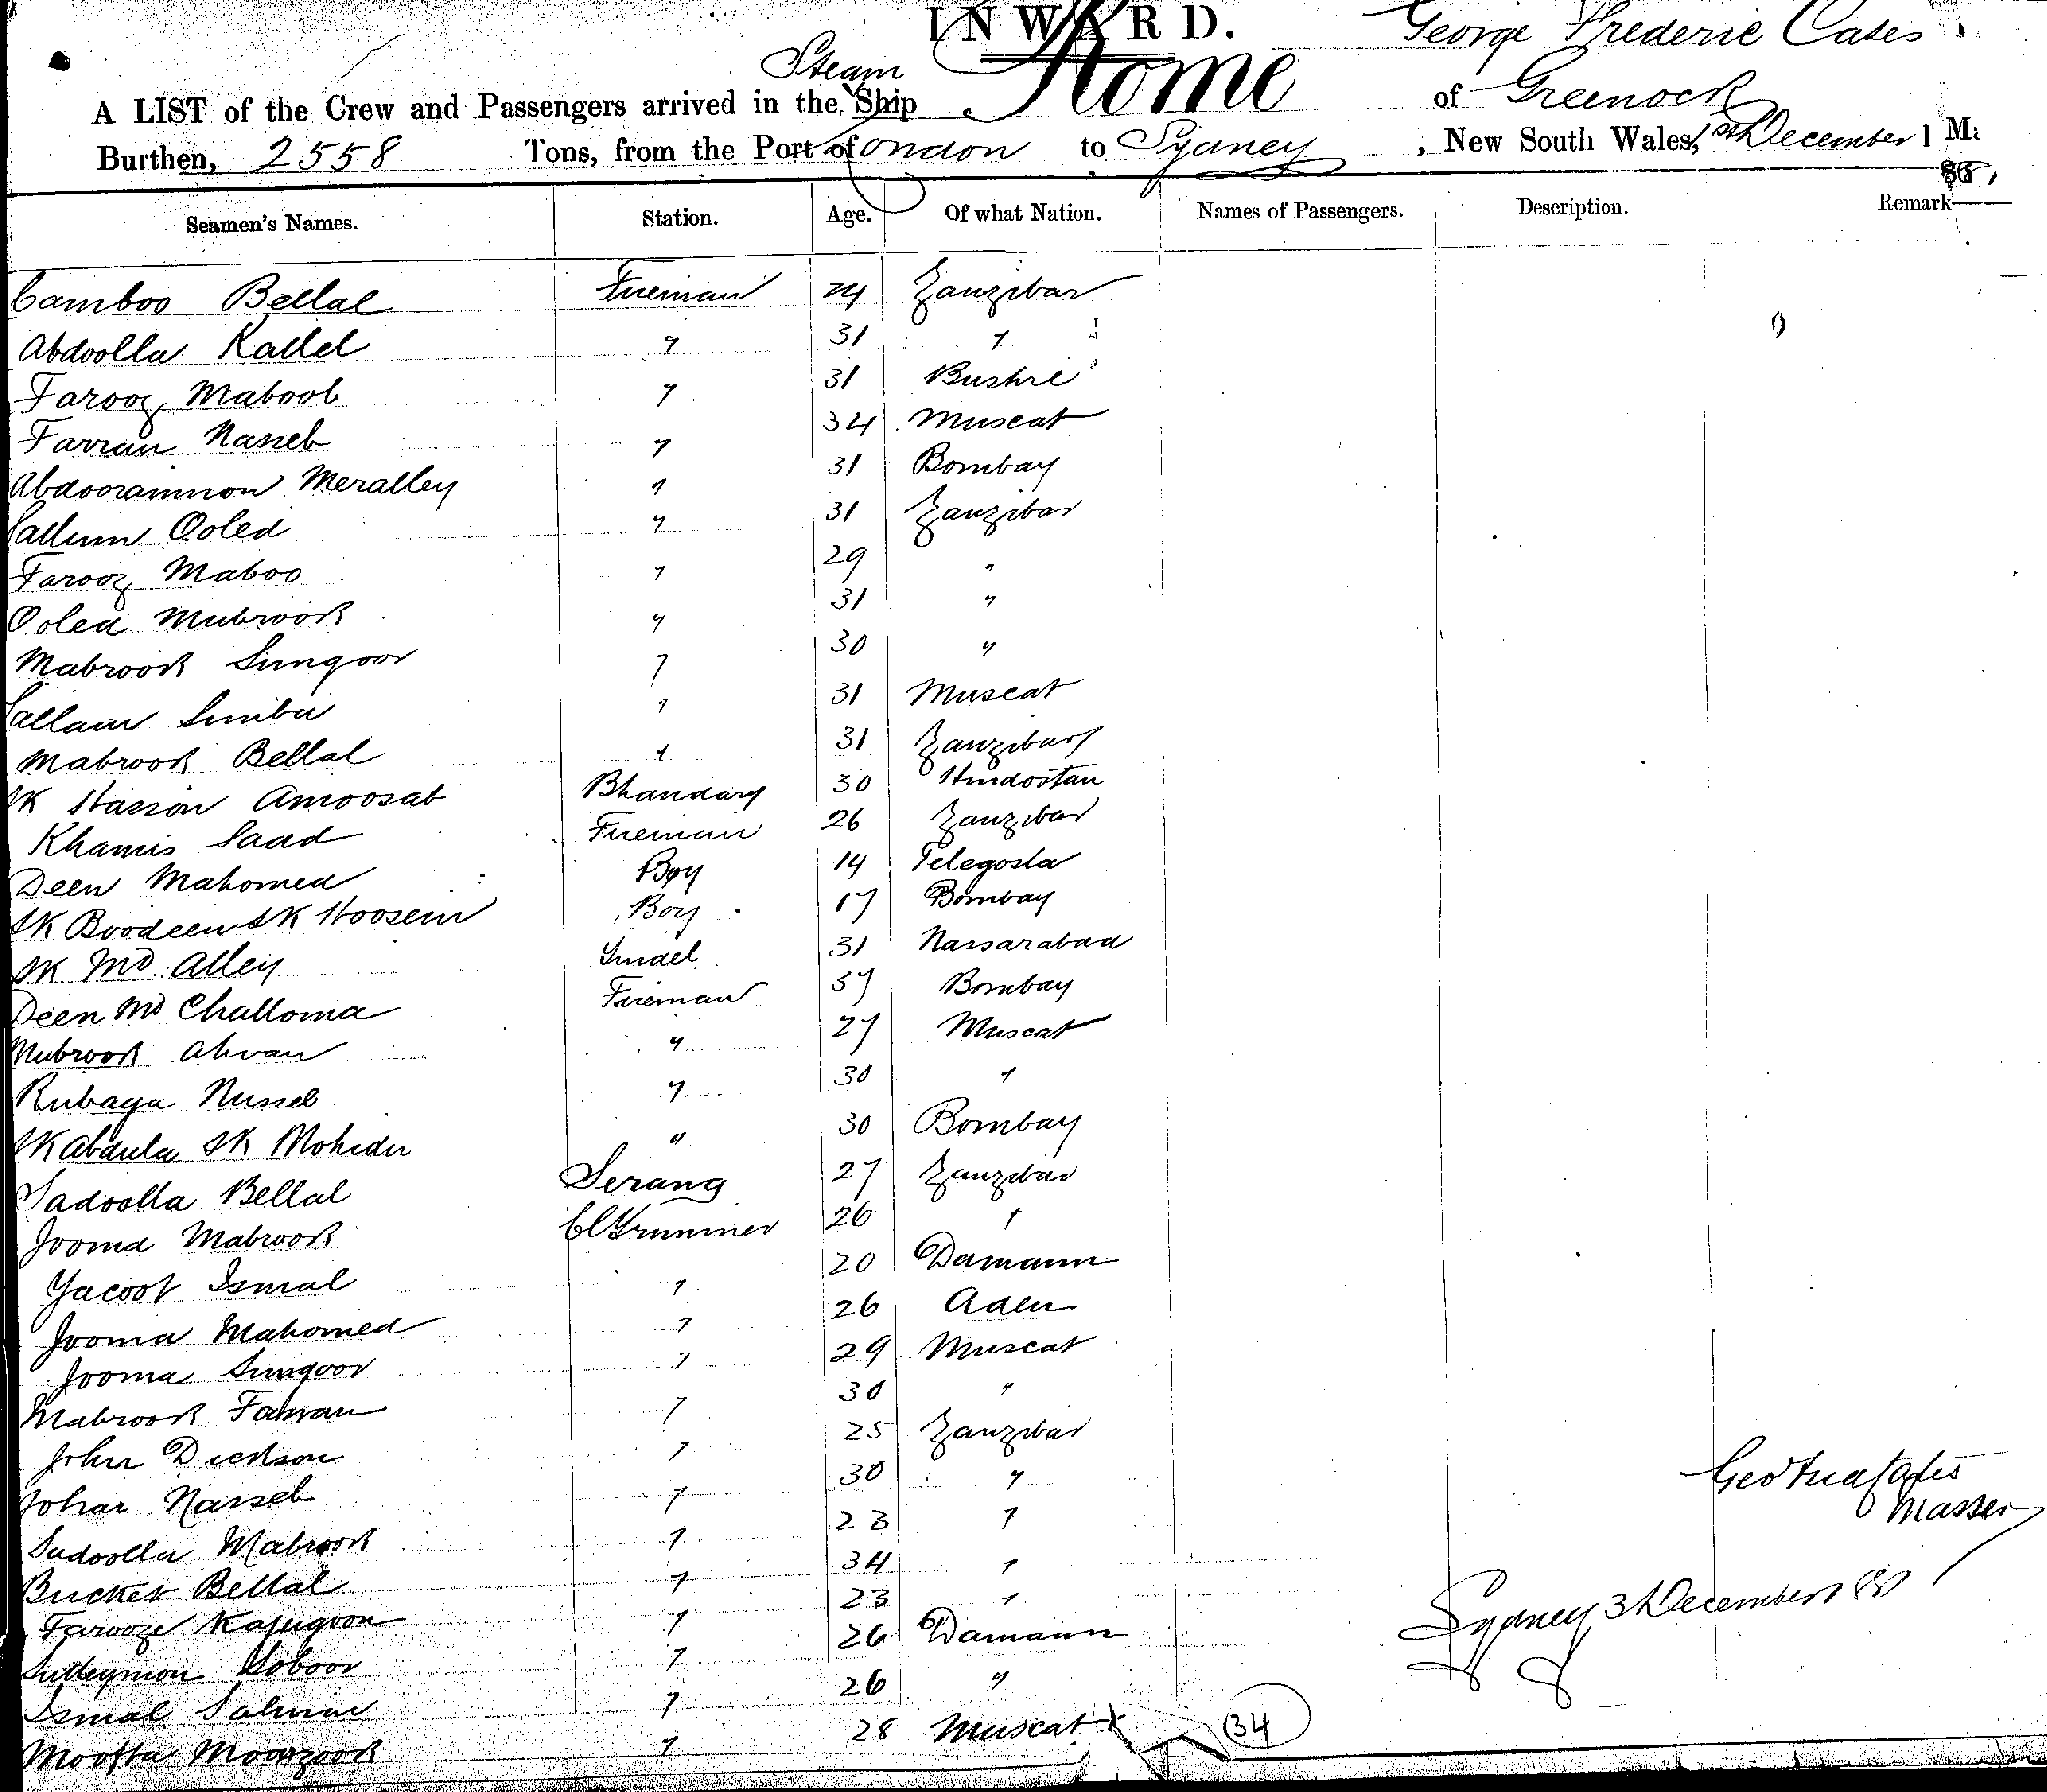 INWARD.
George Frederic Cates
A LIST of the Crew and Passengers arrived in the Steam Ship Rome of Greenock
Burthen, 2558 Tons, from the Port of London to Sydney, New South Wales, 1st December 1
Seamen's Names. Station. Age. Of what Nation. Names of Passengers. Description. Remark
Camboo Bellal Fireman 24 Zanzibar
Abdoolla Kallel " 31 "
Farooz Maboob " 31 Bushre
Farran Nasseb " 34 Muscat
Abdooramnon Meralley " 31 Bombay
Sallum Ooled " 31 Zanzibar
Farooz Maboo " 29 "
Ooled Mubrook " 31 "
Mabrook Sungoor " 30 "
Sallam Simba " 31 Muscat
Mabrook Bellal " 31 Zanzibar
SK Hasson Amoosab Bhandary 30 Hindostan
Khamis Saad Fireman 26 Zanzibar
Deen Mahomed Boy 14
SK Boodeen SK Hoosein Boy 17 Bombay
SK Md Alley 31 Nassarabad
Deen Md Challoma Fireman 37 Bombay
Mubrook " 27 Muscat
Rubaya Nusseb " 30 "
SK Abdula SK Mohidin " 30 Bombay
Sadoolla Bellal Serang 27 Zanzibar
Jooma Mabrook Cl Trimmer 26 "
Yacoot Ismal " 20 Damann
Jooma Mahomed " 26 Aden
Jooma Sungoor " 29 Muscat
Mabrook Farran " 30 "
John Dickson " 25 Zanzibar
Johar Nasseb " 30 "
Sadoolla Mabrook " 23 "
Bucket Bellal " 34 "
Farooze " 23 "
Sulleymon Soboor " 26 Damann
Ismal Salmin " 26 "
Moofta Moorzook " 28 Muscat
34
Master
Sydney 3 December 80